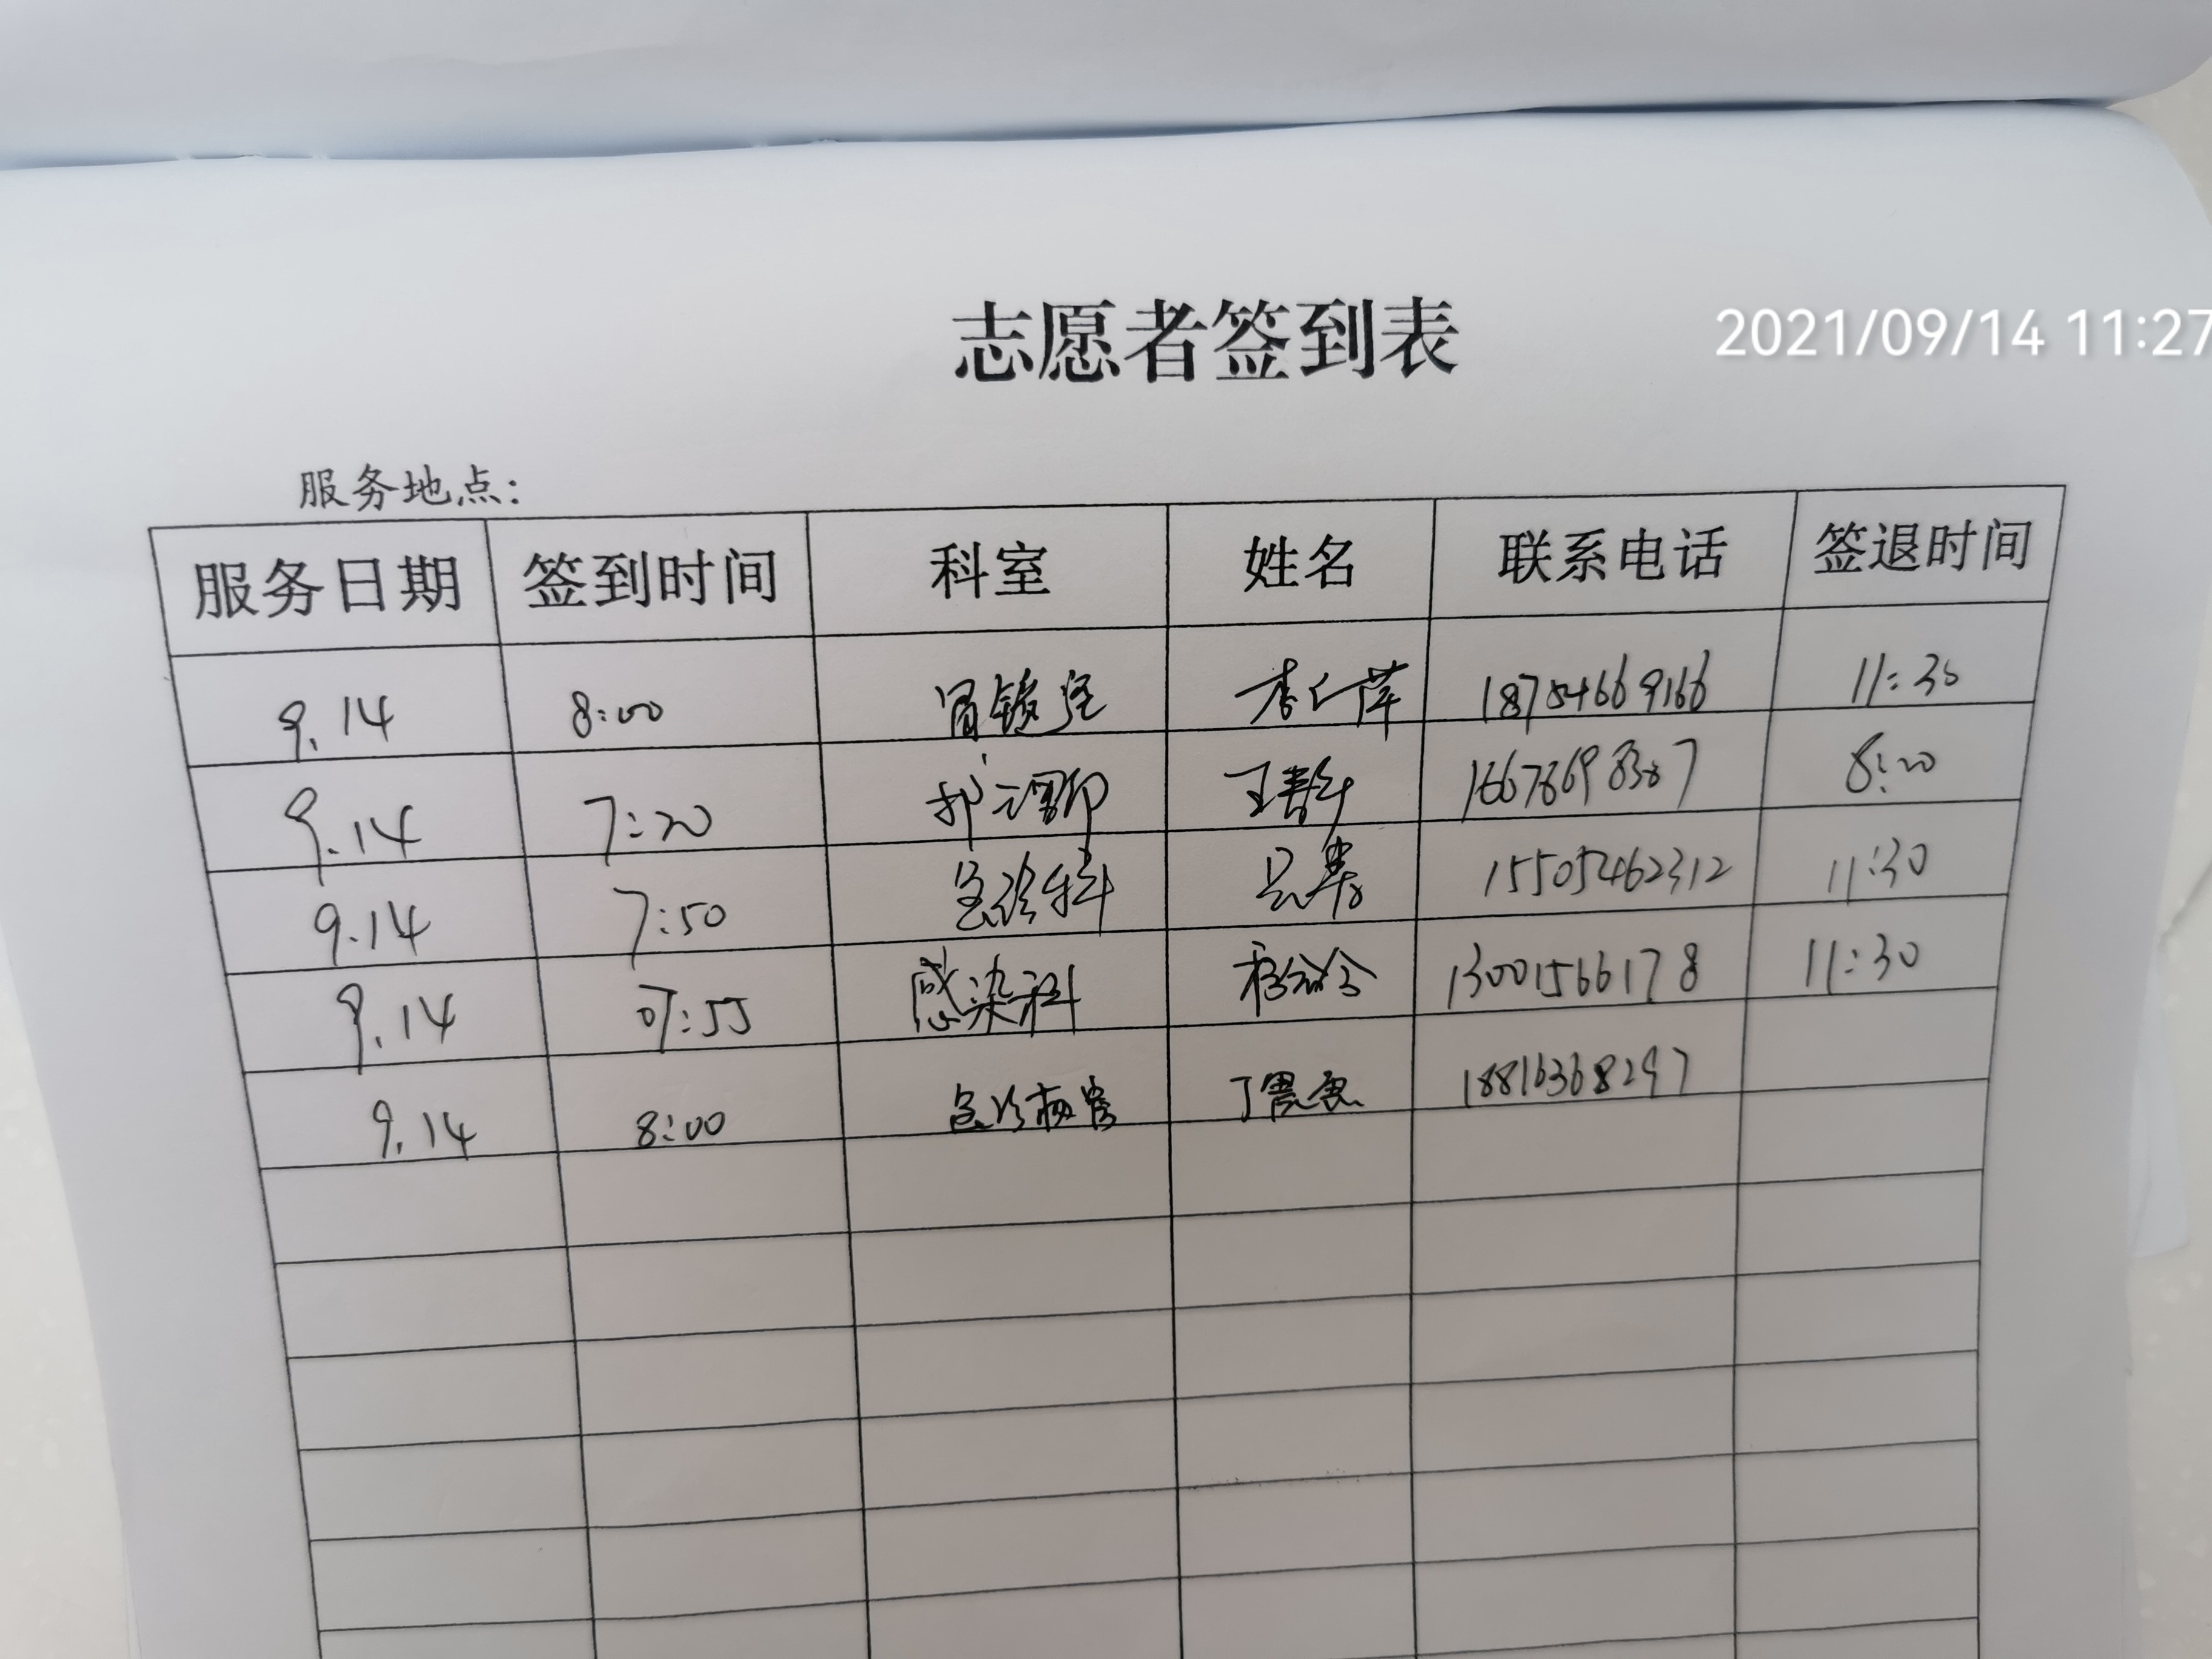 志愿者签到表
2021/09/14 11:27
服务地点:
服务日期 签到时间 科室 姓名 联系电话 签退时间
9.14 8:00 胃镜室 李仁萍 18754669166 11:30
9.14 7:20 护理部 王春 8:20
9.14 7:50 急诊科 15505462312 11:30
9.14 07:55 感染科 13001566178 11:30
9.14 8:00 丁 18816368297